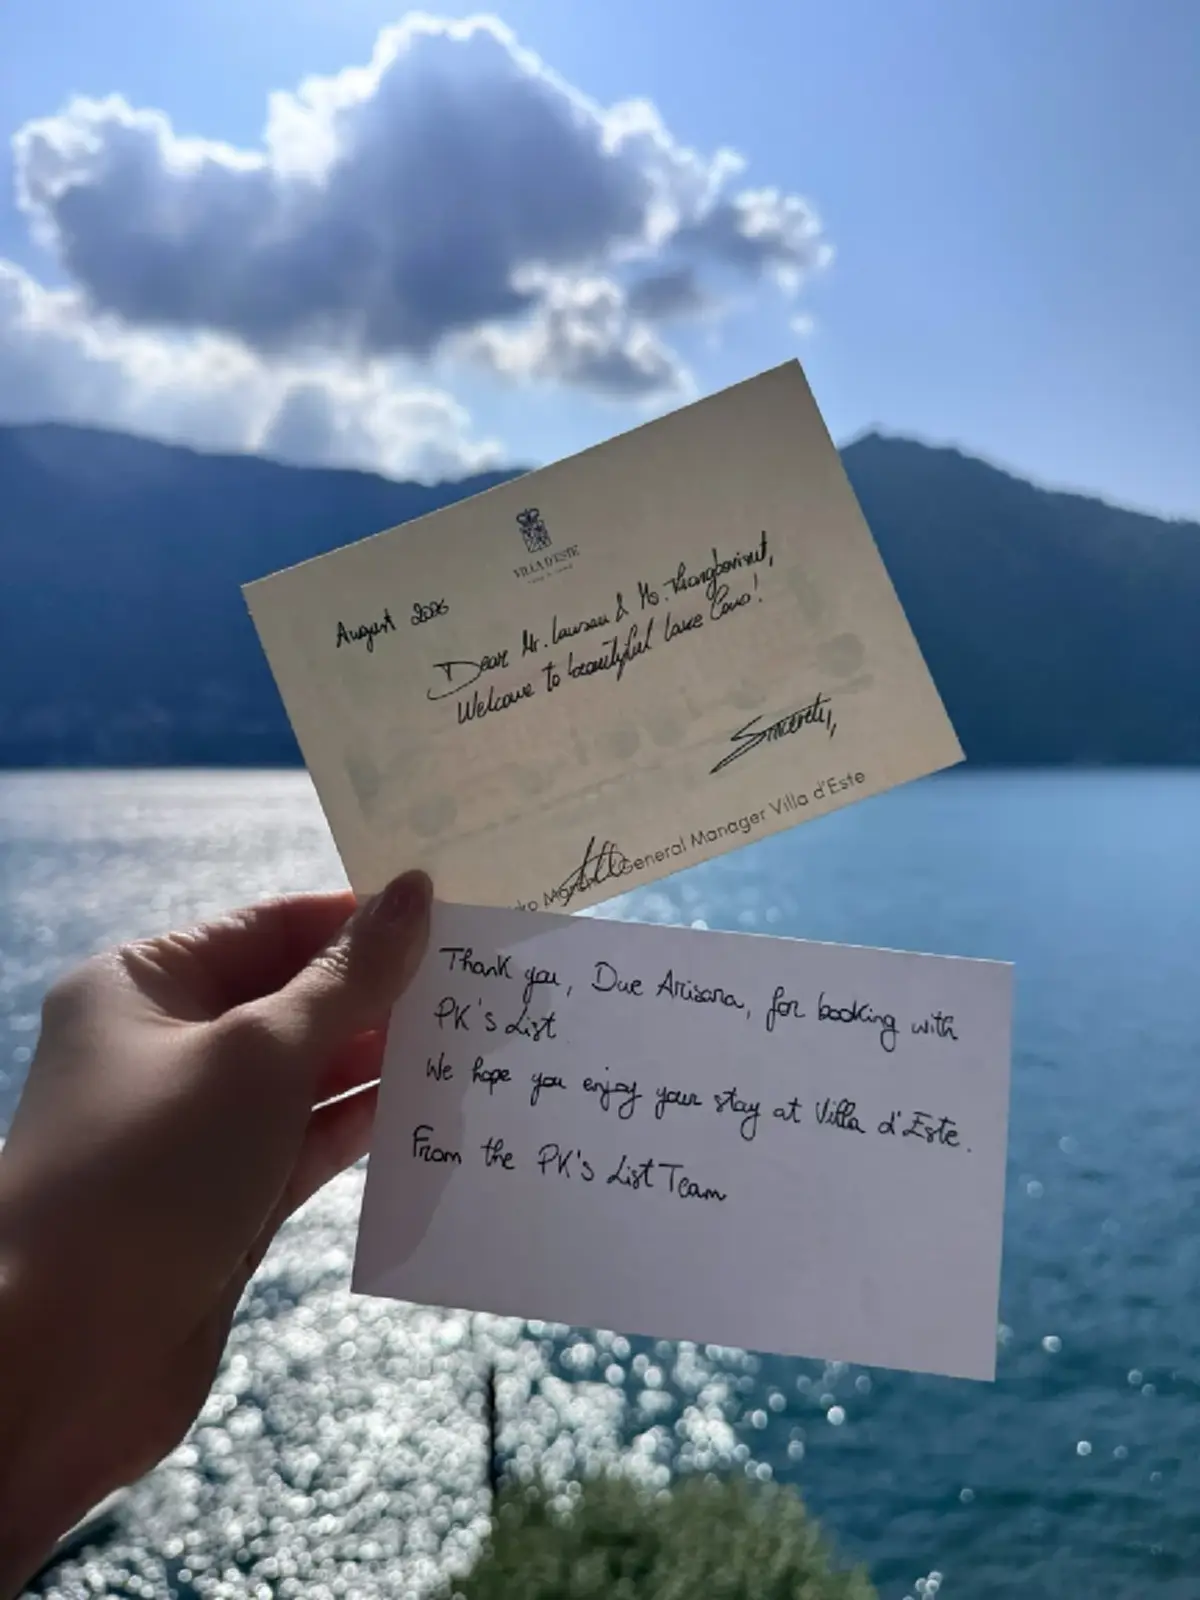 VILLA D'ESTE
August 2026
Dear Mr. Lawson & Ms. Thongborisut,
Welcome to beautiful Lake Como!
Sincerely,
General Manager Villa d'Este
Thank you, Due Arisara, for booking with
PK's List
We hope you enjoy your stay at Villa d'Este.
From the PK's List Team